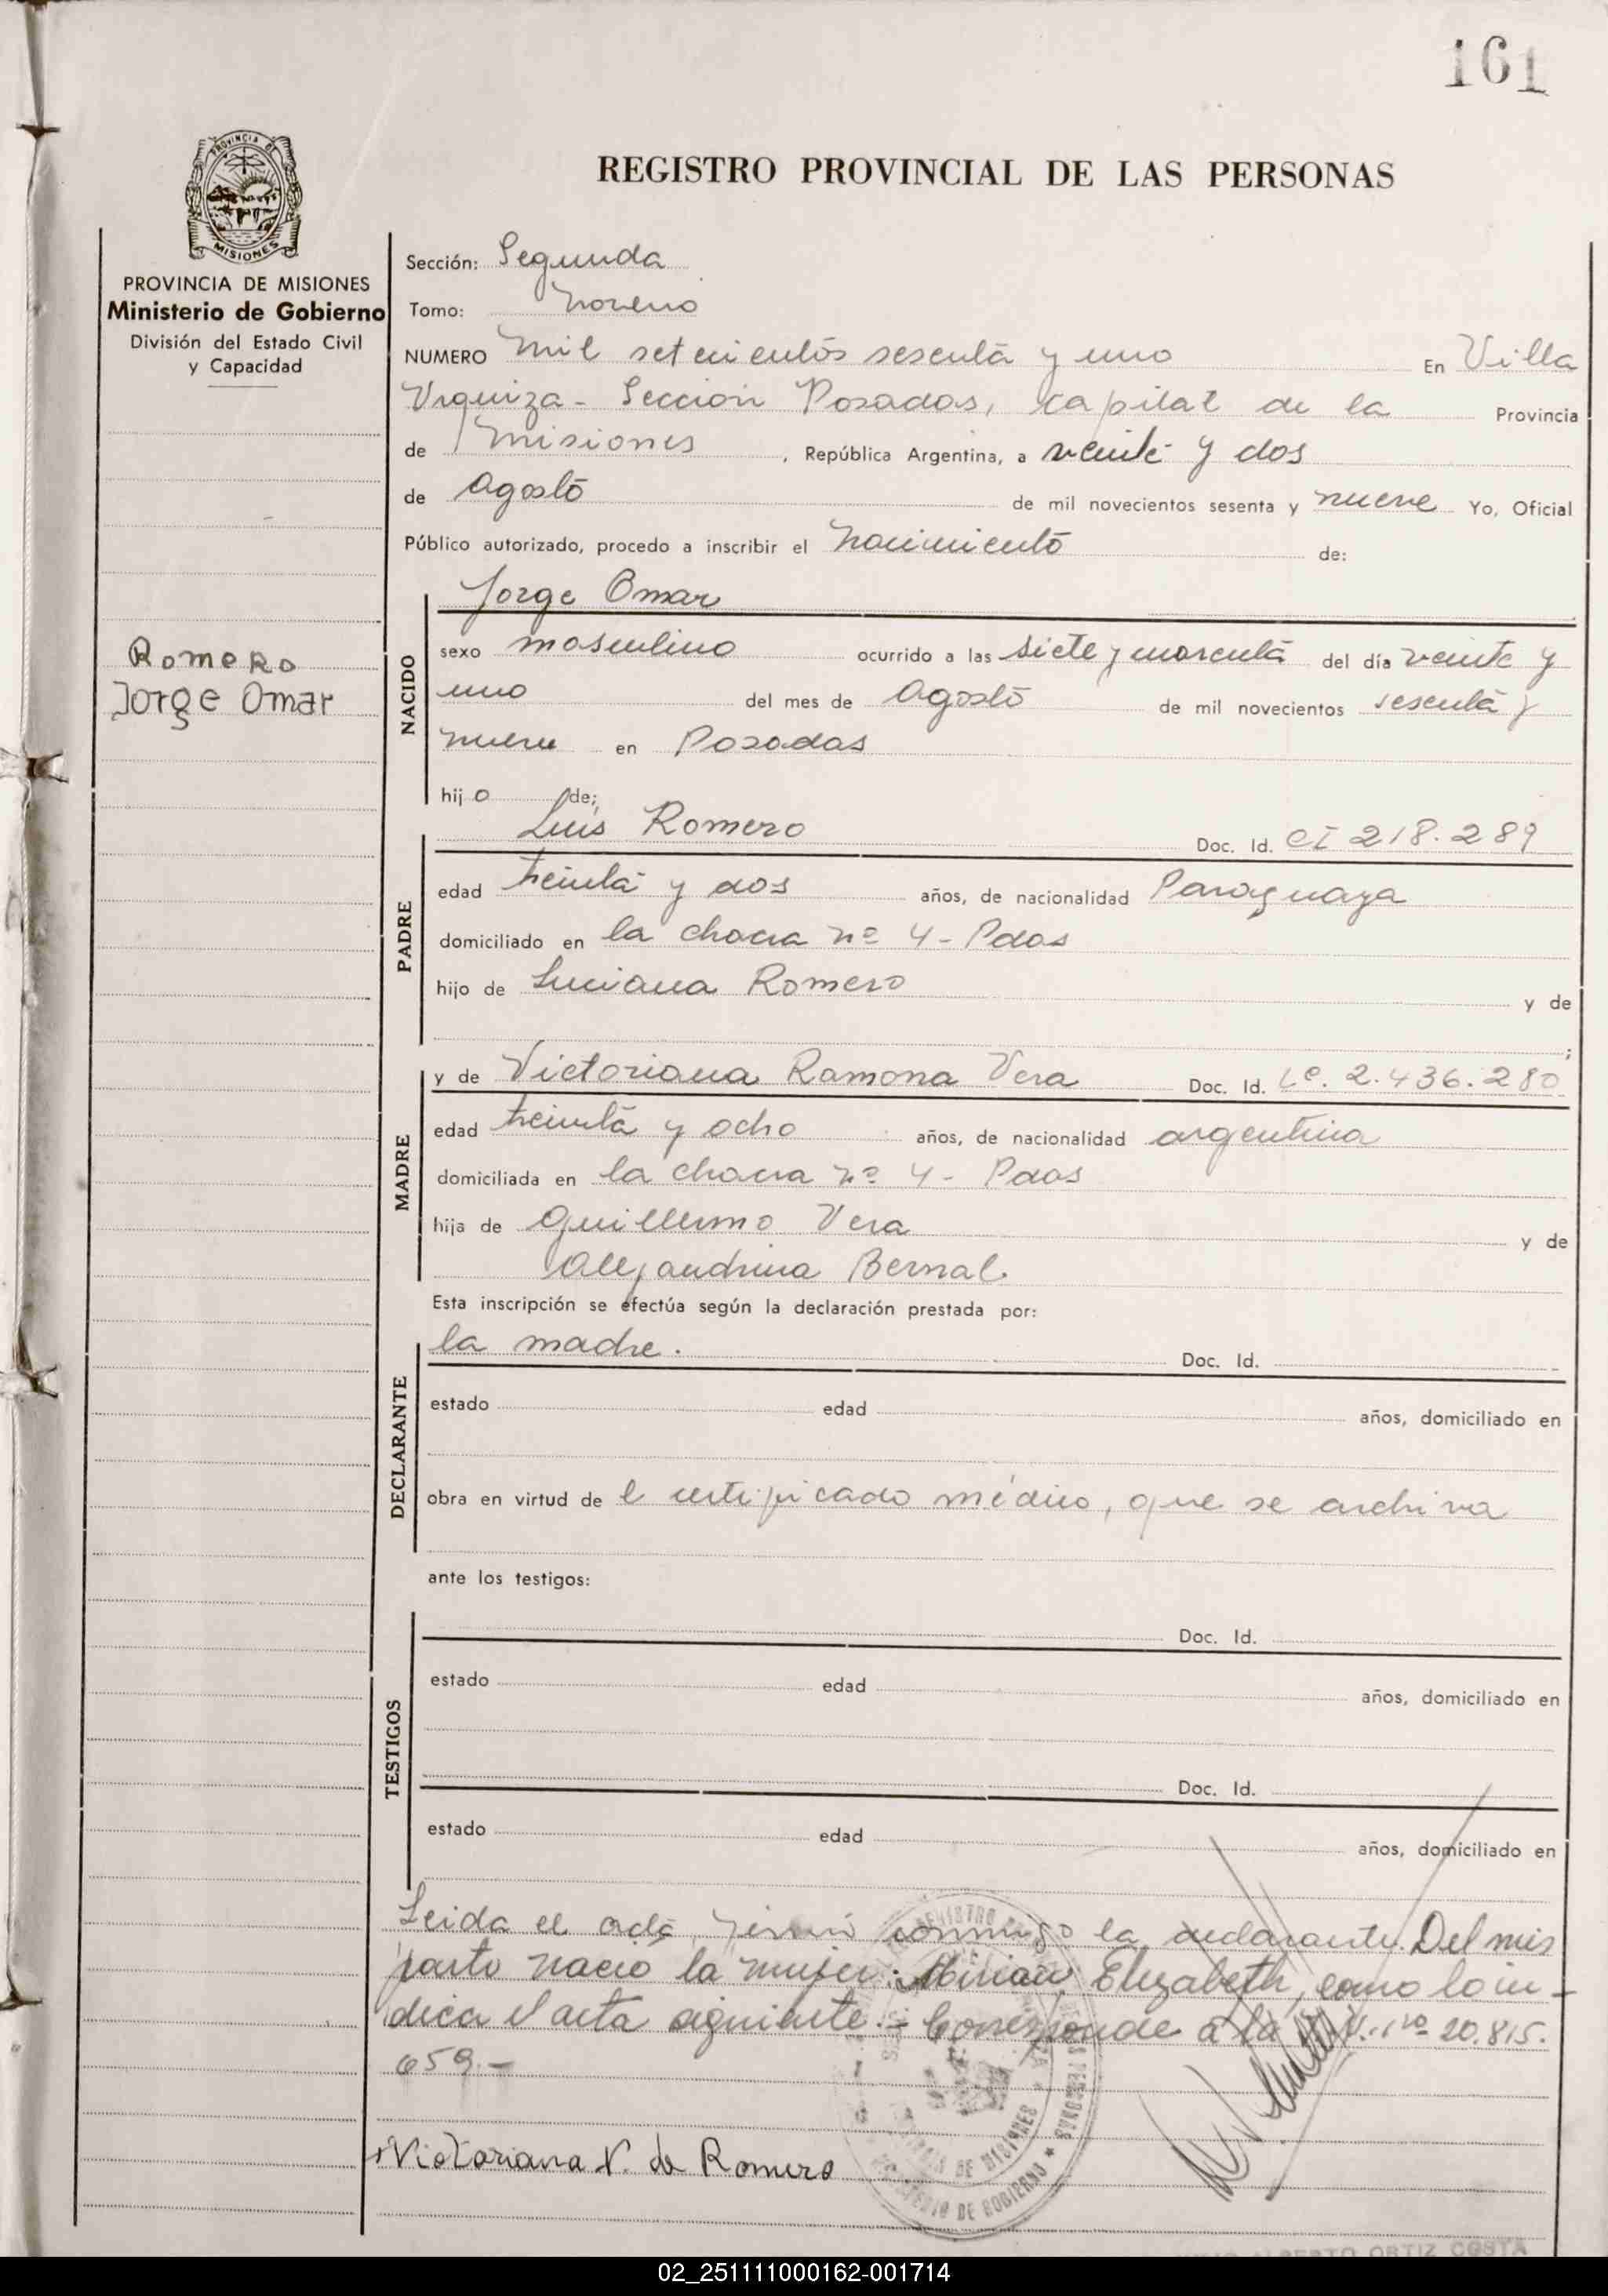 161
PROVINCIA DE MISIONES
REGISTRO PROVINCIAL DE LAS PERSONAS
PROVINCIA DE MISIONES
Ministerio de Gobierno
División del Estado Civil
y Capacidad
Sección: Segunda
Tomo: Noveno
NUMERO Mil setecientos sesenta y uno En Villa
Urquiza - Sección Posadas, capital de la Provincia
de Misiones, República Argentina, a veinte y dos
de Agosto de mil novecientos sesenta y nueve Yo, Oficial
Público autorizado, procedo a inscribir el nacimiento de:
Romero
Jorge Omar
NACIDO
Jorge Omar
sexo masculino ocurrido a las siete y del día veinte y
uno del mes de Agosto de mil novecientos sesenta y
nueve en Posadas
hijo de;
PADRE
Luis Romero Doc. Id. CI 218.289
edad treinta y dos años, de nacionalidad Paraguaya
domiciliado en la chacra nº 4 - Pdas
hijo de Luciana Romero y de
;
MADRE
y de Victoriana Ramona Vera Doc. Id. Lc. 2.436.280
edad treinta y ocho años, de nacionalidad argentina
domiciliada en la chacra nº 4 - Pdas
hija de Guillermo Vera y de
Alejandrina Bernal.
Esta inscripción se efectúa según la declaración prestada por:
DECLARANTE
la madre. Doc. Id.
estado edad años, domiciliado en
obra en virtud de l certificado médico, que se archiva
ante los testigos:
TESTIGOS
Doc. Id.
estado edad años, domiciliado en
Doc. Id.
estado edad años, domiciliado en
Leida el acta, firmó conmigo la declarante. Del mis
parto nació la mujer: Mirian Elizabeth, como lo in-
dica el acta siguiente.- Corresponde a la nro 20.815.
659.-
Victoriana V. de Romero
MINISTERIO DE GOBIERNO
ALBERTO ORTIZ COSTA
02_251111000162-001714